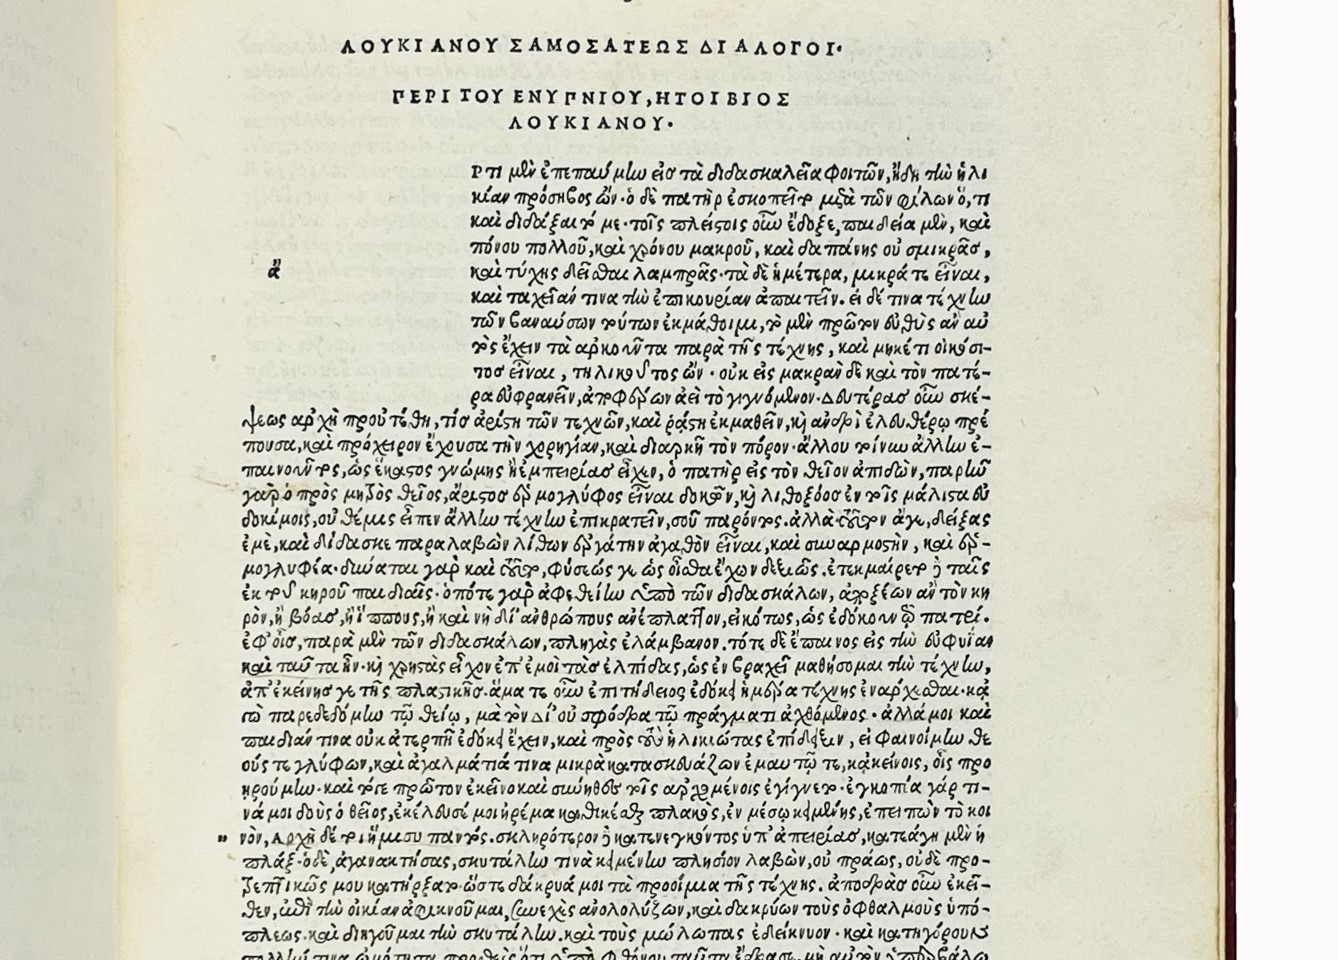 ΛΟΥΚΙΑΝΟΥ ΣΑΜΟΣΑΤΕΩΣ ΔΙΑΛΟΓΟΙ·
ΠΕΡΙ ΤΟΥ ΕΝΥΠΝΙΟΥ, ΗΤΟΙ ΒΙΟΣ
ΛΟΥΚΙΑΝΟΥ·
ΡΤΙ μὲν ἐπεπαύμην εἰσ τὰ διδασκαλεῖα φοιτῶν, ἤδη τὴν ἡλι
κίαν πρόσηβος ὤν· ὁ δὲ πατὴρ ἐσκοπεῖτο μετὰ τῶν φίλων ὅ,τι
καὶ διδάξαιτό με· τοῖς πλείστοις οὖν ἔδοξε, παιδεία μὲν, καὶ
πόνου πολλοῦ, καὶ χρόνου μακροῦ, καὶ δαπάνης οὐ σμικρᾶσ,
ἄ
καὶ τύχης δεῖσθαι λαμπρᾶς· τὰ δὲ ἡμέτερα, μικρά τε εἶναι,
καὶ ταχεῖάν τινα τὴν ἐπικουρίαν ἀπαιτεῖν. εἰ δέ τινα τέχνην
τῶν βαναύσων τούτων ἐκμάθοιμι, τὸ μὲν πρῶτον εὐθὺς ἂν αὐ
τὸς ἔχειν τὰ ἀρκοῦντα παρὰ τῆς τέχνης, καὶ μηκέτι οἰκόσι-
τοσ εἶναι, τηλικοῦτος ὤν· οὐκ εἰς μακρὰν δὲ καὶ τὸν πατέ-
ρα εὐφρανεῖν, ἀποφέρων ἀεὶ τὸ γιγνόμενον· Δευτέρασ οὖν σκέ-
ψεως ἀρχὴ προὐτέθη, τίσ ἀρίστη τῶν τεχνῶν, καὶ ῥᾴστη ἐκμαθεῖν, καὶ ἀνδρὶ ἐλευθέρῳ πρέ
πουσα, καὶ πρόχειρον ἔχουσα τὴν χορηγίαν, καὶ διαρκῆ τὸν πόρον· ἄλλου τοίνυν ἄλλην ἐ-
παινοῦντος, ὡς ἕκαστος γνώμης ἢ ἐμπειρίασ εἶχεν, ὁ πατὴρ εἰς τὸν θεῖον ἀπιδὼν, παρῆν
γαρ ὁ πρὸς μητρὸς θεῖος, ἄριστοσ ἑρμογλύφος εἶναι δοκῶν, καὶ λιθοξόοσ ἐν τοῖς μάλιστα εὐ
δοκίμοις, οὐ θέμις εἶπεν ἄλλην τέχνην ἐπικρατεῖν, σοῦ παρόντος. ἀλλὰ τοῦτον ἄγε, δείξας
ἐμὲ, καὶ δίδασκε παραλαβὼν λίθων ἐργάτην ἀγαθὸν εἶναι, καὶ συναρμοστὴν, καὶ ἑρ-
μογλυφέα· δύναται γὰρ καὶ τοῦτο, φύσεώς γε ὡς οἶσθα ἔχων δεξιῶς. ἐτεκμαίρετο δὲ ταῖς
ἐκ τοῦ κηροῦ παιδιαῖς· ὁπότε γὰρ ἀφεθείην ὑπὸ τῶν διδασκάλων, ἀποξέων ἂν τὸν κη
ρὸν, ἢ βόασ, ἢ ἵππους, ἢ καὶ νὴ δί' ἀνθρώπους ἀνέπλαττον, εἰκότως, ὡς ἐδόκουν τῷ πατρί.
ἐφ' οἷσ, παρὰ μὲν τῶν διδασκάλων, πληγὰς ἐλάμβανον. τότε δὲ ἔπαινος εἰς τὴν εὐφυΐαν
καὶ ταῦτα ἦν· καὶ χρηστὰς εἶχον ἐπ' ἐμοὶ τὰσ ἐλπίδας, ὡς ἐν βραχεῖ μαθήσομαι τὴν τέχνην,
ἀπ' ἐκείνησ γε τῆς πλαστικῆσ. ἅμα τε οὖν ἐπιτήδειος ἐδόκει ἡμέρα τέχνης ἐνάρχεσθαι· κἀ
γὼ παρεδεδόμην τῷ θείῳ, μὰ τὸν Δί' οὐ σφόδρα τῷ πράγματι ἀχθόμενος· ἀλλά μοι καὶ
παιδιάν τινα οὐκ ἀτερπῆ ἐδόκει ἔχειν, καὶ πρὸς τοὺς ἡλικιώτας ἐπίδειξιν, εἰ φαινοίμην θε
ούς τε γλύφων, καὶ ἀγαλμάτιά τινα μικρὰ κατασκευάζων ἐμαυτῷ τε, κἀκείνοις, οἷς προ
ῃρούμην· καὶ τότε πρῶτον ἐκεῖνο καὶ σύνηθες τοῖς ἀρχομένοις ἐγίγνετο· ἐγκοπέα γάρ τι-
νά μοι δοὺς ὁ θεῖος, ἐκέλευσέ μοι ἠρέμα καθικέσθαι πλακὸς, ἐν μέσῳ κειμένης, ἐπειπὼν τὸ κοι
" νὸν, Ἀρχὴ δέ τοι ἥμισυ παντός. σκληρότερον δὲ κατενεγκόντος ὑπ' ἀπειρίασ, κατεάγη μὲν ἡ
πλάξ· ὁ δὲ, ἀγανακτήσας, σκυτάλην τινὰ κειμένην πλησίον λαβὼν, οὐ πράως, οὐδὲ προ-
τρεπτικῶς μου κατήρξατο· ὥστε δάκρυά μοι τὰ προοίμια τῆς τέχνης. ἀποδρὰσ οὖν ἐκεῖ-
θεν, ἐπὶ τὴν οἰκίαν ἀφικνοῦμαι, συνεχὲς ἀνολολύζων, καὶ δακρύων τοὺς ὀφθαλμοὺς ὑπό-
πλεως. καὶ διηγοῦμαι τὴν σκυτάλην. καὶ τοὺς μώλωπας ἐδείκνυον· καὶ κατηγόρουν